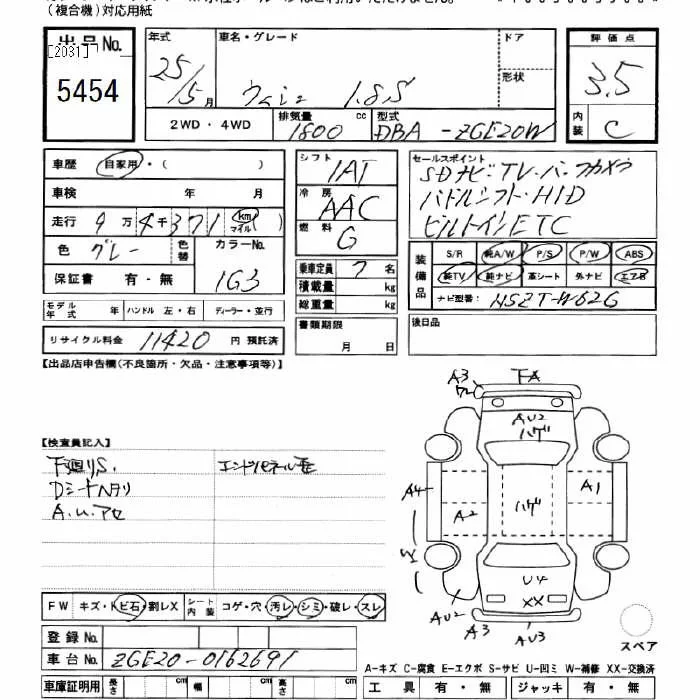 (複合機)対応用紙
出品No.
[2031]
5454
年式
25/5月
車名・グレード
ウィッシュ 1.8S
ドア
形状
2WD・4WD
排気量
1800 cc
型式
DBA-ZGE20W
評価点
3.5
内装
C
車歴 自家用・( )
車検 年 月
走行 9万4千371 km マイル ( )
色 グレー
色替
カラーNo.
1G3
保証書 有・無
モデル年式 年 ハンドル 左・右 ディーラー・並行
リサイクル料金 11420 円 預託済
シフト
IAT
冷房
AAC
燃料
G
乗車定員 7 名
積載量 kg
総重量 kg
書類期限
月 日
セールスポイント
SDナビ・TV・バックカメラ
パドルシフト・HID
ビルトインETC
装備品
S/R 純A/W P/S P/W ABS
純TV 純ナビ 革シート 外ナビ エアB
ナビ型番: NSZT-W62G
後日品
【出品店申告欄(不良箇所・欠品・注意事項等)】
【検査員記入】
下廻りS.
エンドパネル歪
Dシートヘタリ
A.U.アセ
A3
ワレ
FA
AU2
ハゲ
A4
A2
ハゲ
A1
U4
XX
X
AU2
A3
AU3
スペア
FW キズ・ヒビ石・割レX
シート内装
コゲ・穴・汚レ・シミ・破レ・スレ
登録No.
車台No. ZGE20-0162691
車庫証明用 長さ cm 幅 cm 高さ cm
A-キズ C-腐食 E-エクボ S-サビ U-凹ミ W-補修 XX-交換済
工具 有・無 ジャッキ 有・無